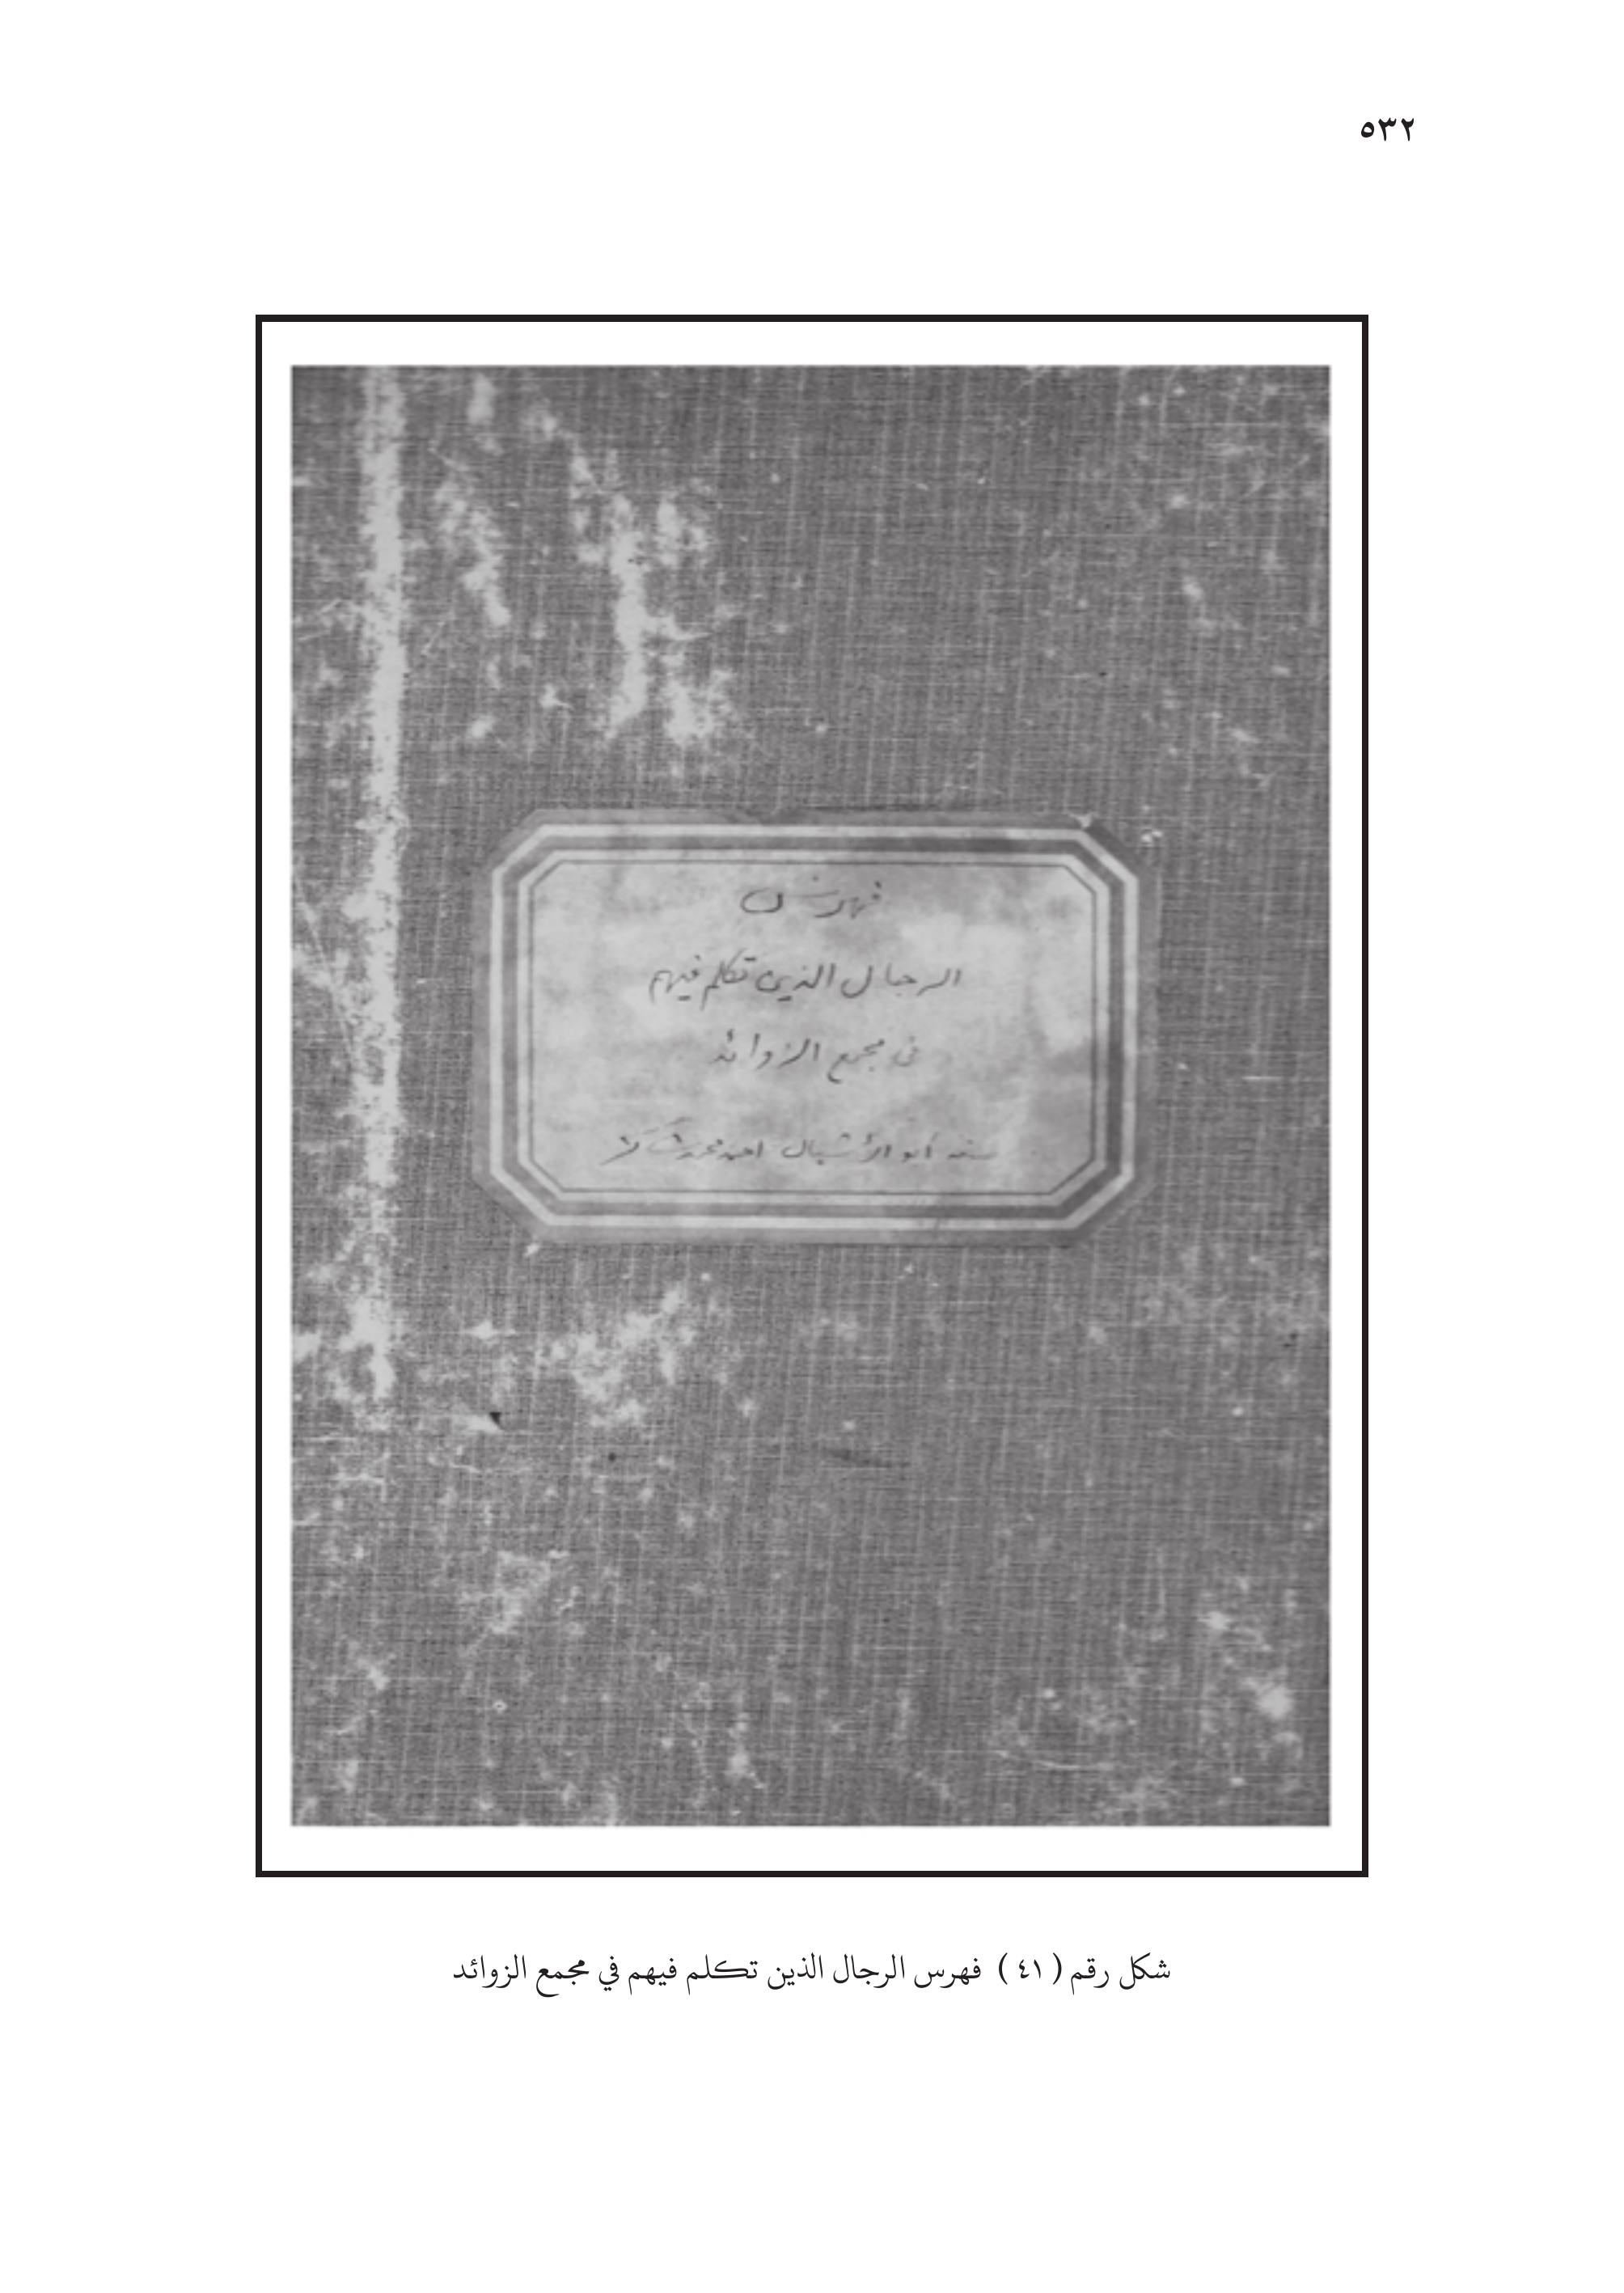 ٥٣٢
فهرس
الرجال الذين تكلم فيهم
فى مجمع الزوائد
صنعه أبو الأشبال احمد محمد شاكر
شكل رقم ( ٤١ ) فهرس الرجال الذين تكلم فيهم في مجمع الزوائد